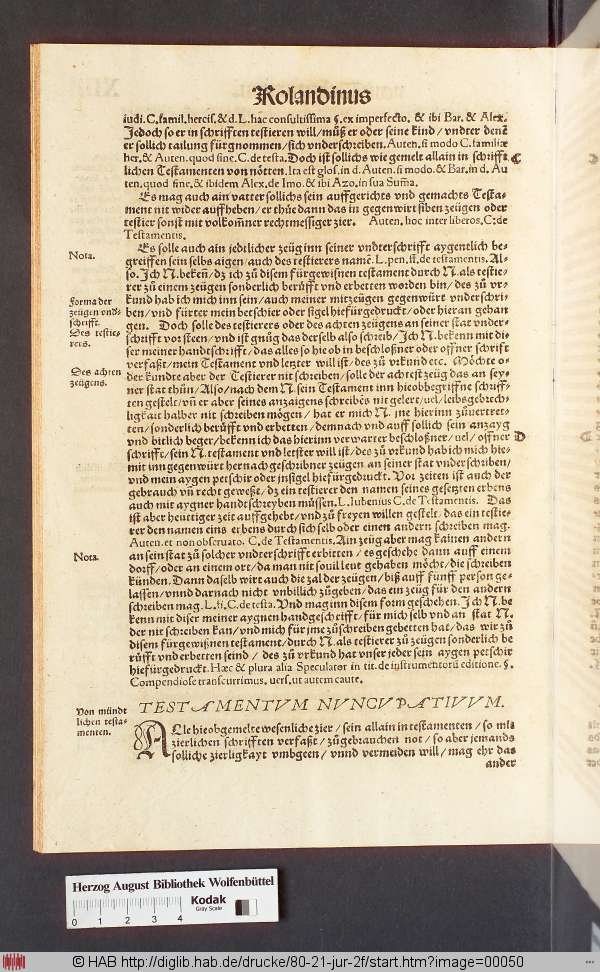 Rolandinus
iudi. C. famil. hercis. & d. L. hac consultissima §. ex imperfecto. & ibi Bar. & Alex.
Jedoch so er in schrifften testieren will / můß er oder seine kind / vndter denē
er sollich tailung fürgnommen / sich vnderschreiben. Auten. si modo C. familiæ
her. & Auten. quod sine. C. de testa. Doch ist sollichs wie gemelt allain in schrifft
lichen Testamenten von nötten. Ita est glos. in d. Auten. si modo. & Bar. in d. Au
ten. quod sine. & ibidem Alex. de Imo. & ibi Azo. in sua Sum̄a.
C
Es mag auch ain vatter sollichs sein auffgerichts vnd gemachts Testa-
ment nit wider auffheben / er thüe dann das in gegenwirt siben zeügen oder
testier sonst mit volkom̄ner rechtmessiger zier. Auten. hoc inter liberos, C: de
Testamentis.
Nota.
Es solle auch ain jedtlicher zeüg inn seiner vndterschrifft aygentlich be-
greiffen sein selbs aigen / auch des testierers namē. L. pen. ff. de testamentis. Al-
so. Ich N. beken̄ / dz ich zů disem fürgewisnen testament durch N. als testie-
rer zů einem zeügen sonderlich berůfft vnd erbetten worden bin / des zů vr-
kund hab ich mich inn sein / auch meiner mitzeügen gegenwürt vnderschri-
ben / vnd fürter mein betschier oder sigel hiefürgedruckt / oder hieran gehan
gen. Doch solle des testierers oder des achten zeügens an seiner stat vnder-
schrifft vorsteen / vnd ist gnůg das der selb also schreib / Ich N. bekenn mit di
ser meiner handtschrifft / das alles so hie ob in beschloßner oder offner schrift
verfaßt / mein Testament vnd letzter will ist / des zů vrkund etc. Möchte o-
der kundte aber der Testierer nit schreiben / solle der achtest zeüg das an sey-
ner stat thůn / Also / nach dem N. sein Testament inn hieobbegriffne schriff-
ten gestelt / vn̄ er aber seines anzaigens schreibēs nit gelert / uel / leibsgebrech-
ligkait halber nit schreiben mögen / hat er mich N. jne hierinn zůuertret-
ten / sonderlich berůfft vnd erbetten / demnach vnd auff sollich sein anzayg
vnd bitlich beger / bekenn ich das hierinn verwarter beschloßner / uel / offner
schrifft / sein N. testament vnd letster will ist / des zů vrkund hab ich mich hie-
mit inn gegenwürt hernach geschribner zeügen an seiner stat vnderschriben /
vnd mein aygen petschir oder jnsigel hiefürgedruckt. Vor zeiten ist auch der
gebrauch vn̄ recht geweßt / dz ein testierer den namen seines gesetzten erbens
auch mit aygner handtschreyben müssen. L. Iubemus C. de Testamentis. Das
ist aber heuttiger zeit auffgehebt / vnd zů freyen willen gestelt / das ein testie-
rer den namen eins erbens durch sich selb oder einen andern schreiben mag.
Auten. et non obseruato. C. de Testamentis. Ain zeüg aber mag kainen andern
an sein stat zů solcher vndterschrifft erbitten / es geschehe dann auff einem
dorff / oder an einem ort / da man nit souil leut gehaben möcht / die schreiben
künden. Dann daselb wirt auch die zal der zeügen / biß auff fünff person ge-
lassen / vnnd darnach nicht vnbillich zůgeben / das ein zeüg für den andern
schreiben mag. L. fi. C. de testa. Vnd mag inn disem form geschehen. Ich N. be
kenn mit diser meiner aygnen handgeschrifft / für mich selb vnd an stat N.
der nit schreiben kan / vnd mich für jme zůschreiben gebetten hat / das wir zů
disem fürgewißnen testament / durch N. als testierer zů zeügen sonderlich be
růfft vnd erbetten seind / des zů vrkund hat vnser jeder sein aygen petschir
hiefürgedruckt. Hæc & plura alia Speculator in tit. de instrumentorū editione. §.
Compendiose transcurrimus, uers. ut autem caute.
Forma der
zeügen vnd-
schrifft.
Des testie-
rers.
Des achten
zeügens.
D
Nota.
TESTAMENTVM NVNCVPATIVVM.
Von mündt
lichen testa-
menten.
ALle hieobgemelte wesenliche zier / sein allain in testamenten / so mit
zierlichen schrifften verfaßt / zůgebrauchen not / so aber jemands
solliche zierligkayt vmbgeen / vnnd vermeiden will / mag ehr das
ander
Herzog August Bibliothek Wolfenbüttel
Kodak
Gray Scale
0 1 2 3 4
© HAB http://diglib.hab.de/drucke/80-21-jur-2f/start.htm?image=00050